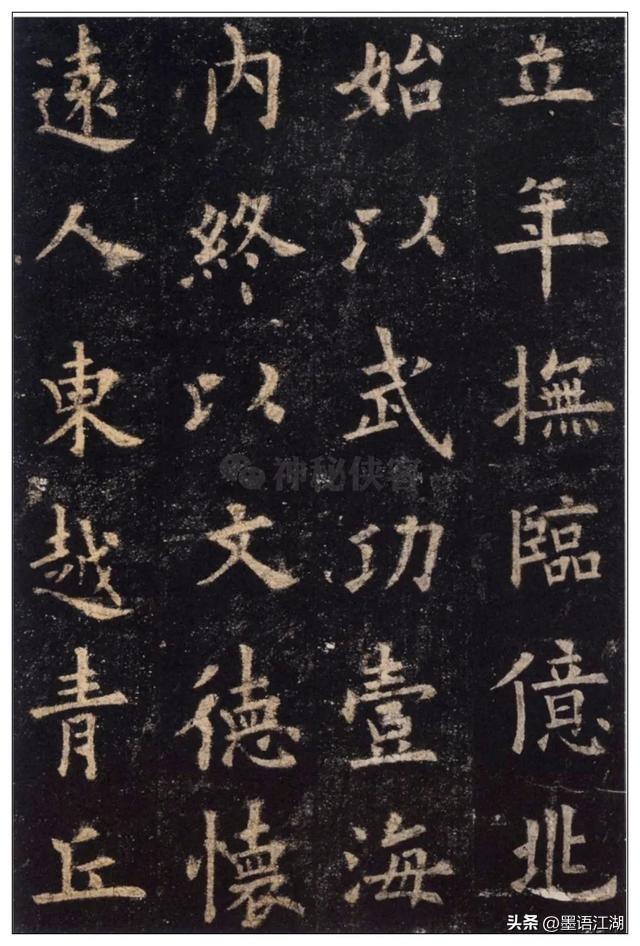 立年撫臨億兆
始以武功壹海
内終以文德懷
遠人東越青丘
神秘侠客
头条 @墨语江湖